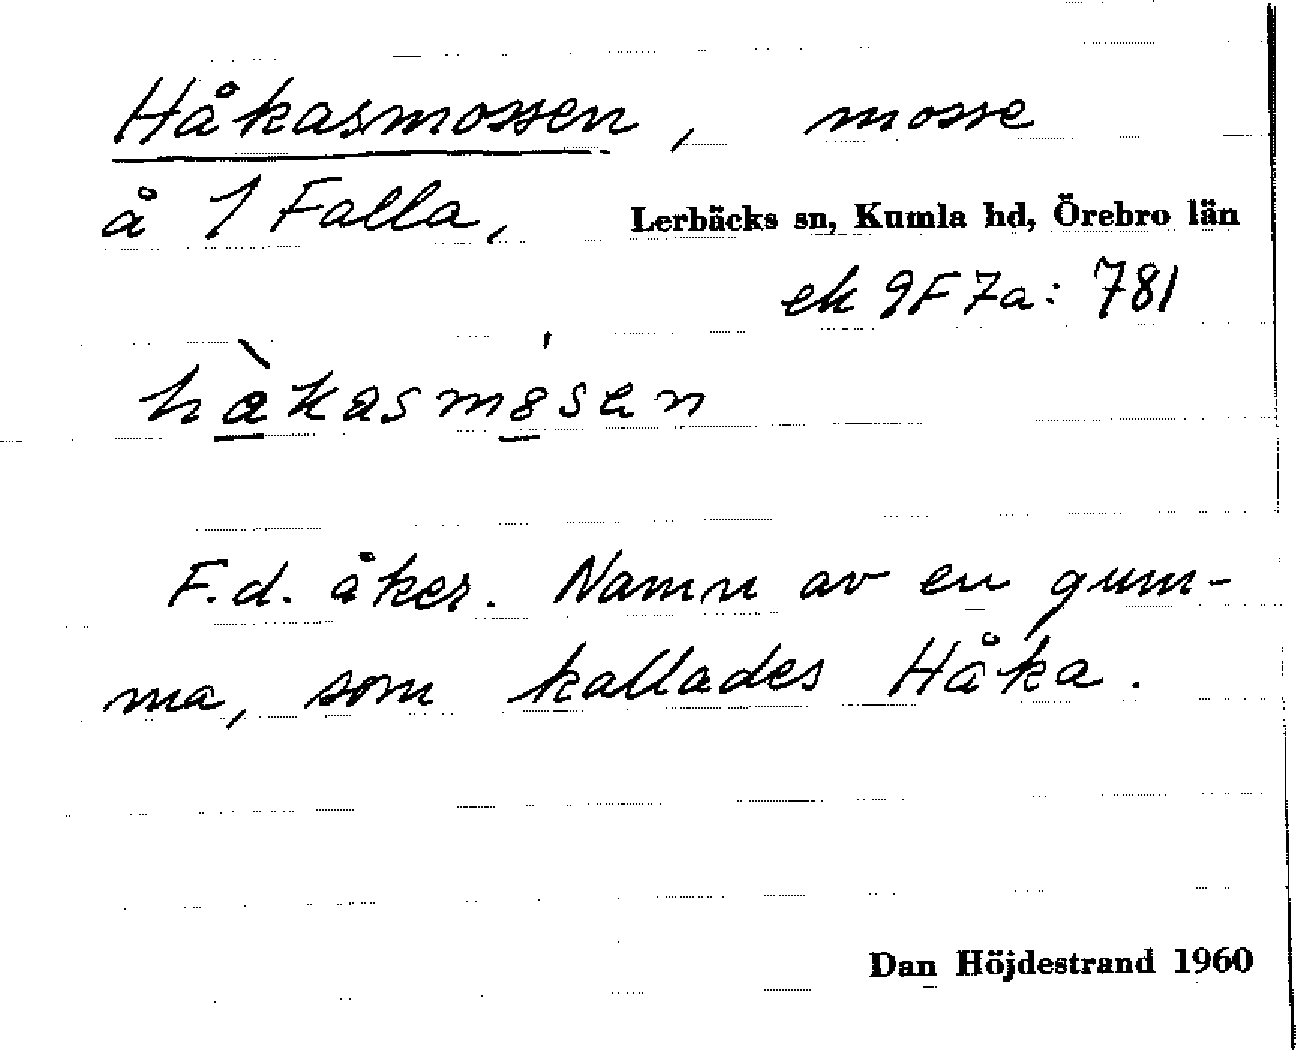 Håkasmossen, mosse
å 1 Falla, Lerbäcks sn, Kumla hd, Örebro län
ek 9F7a: 781
F.d. åker. Namn av en gum-
ma, som kallades Håka.
Dan Höjdestrand 1960